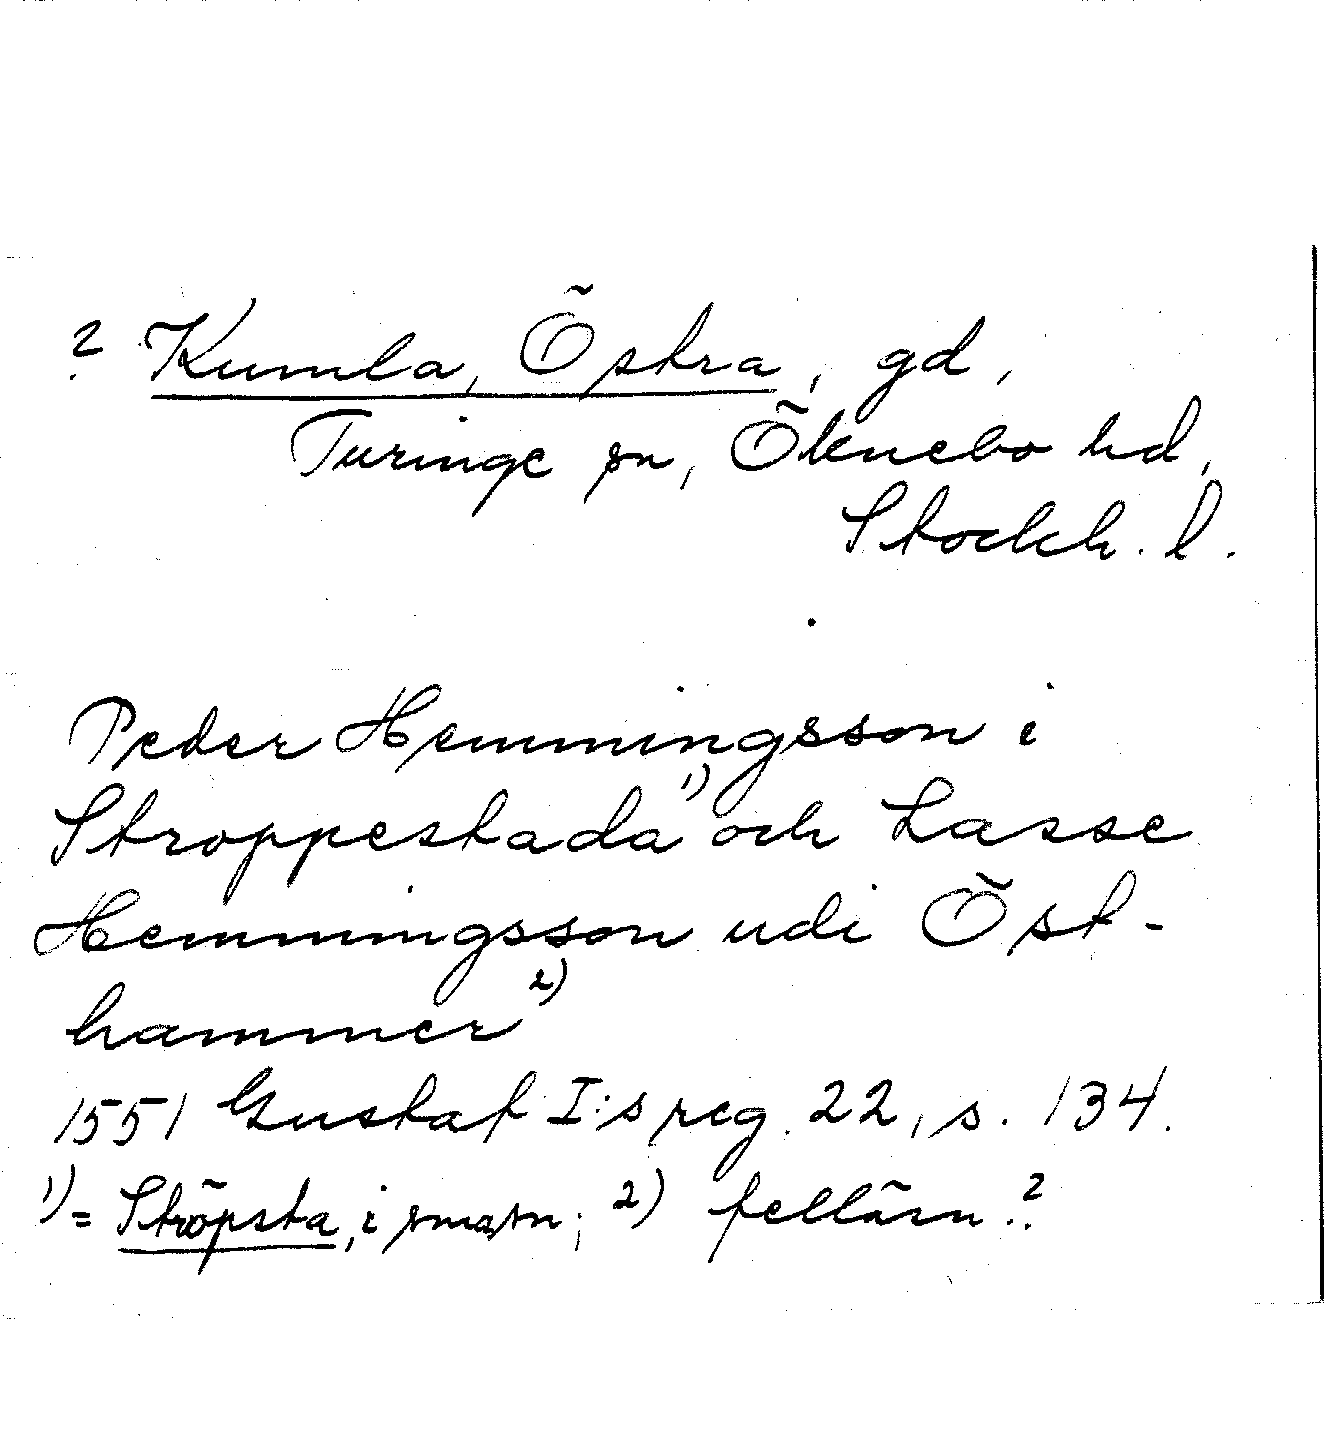 ? Kumla, Östra, gd,
Turinge sn, Öknebo hd,
Stockh. l.
Peder Hemmingsson i
Stroppestada 1) och Lasse
Hemmingsson udi Öst-
hammer 2)
1551 Gustaf I:s reg. 22, s. 134.
1) = Ströpsta, i smasn; 2) felläsn.?